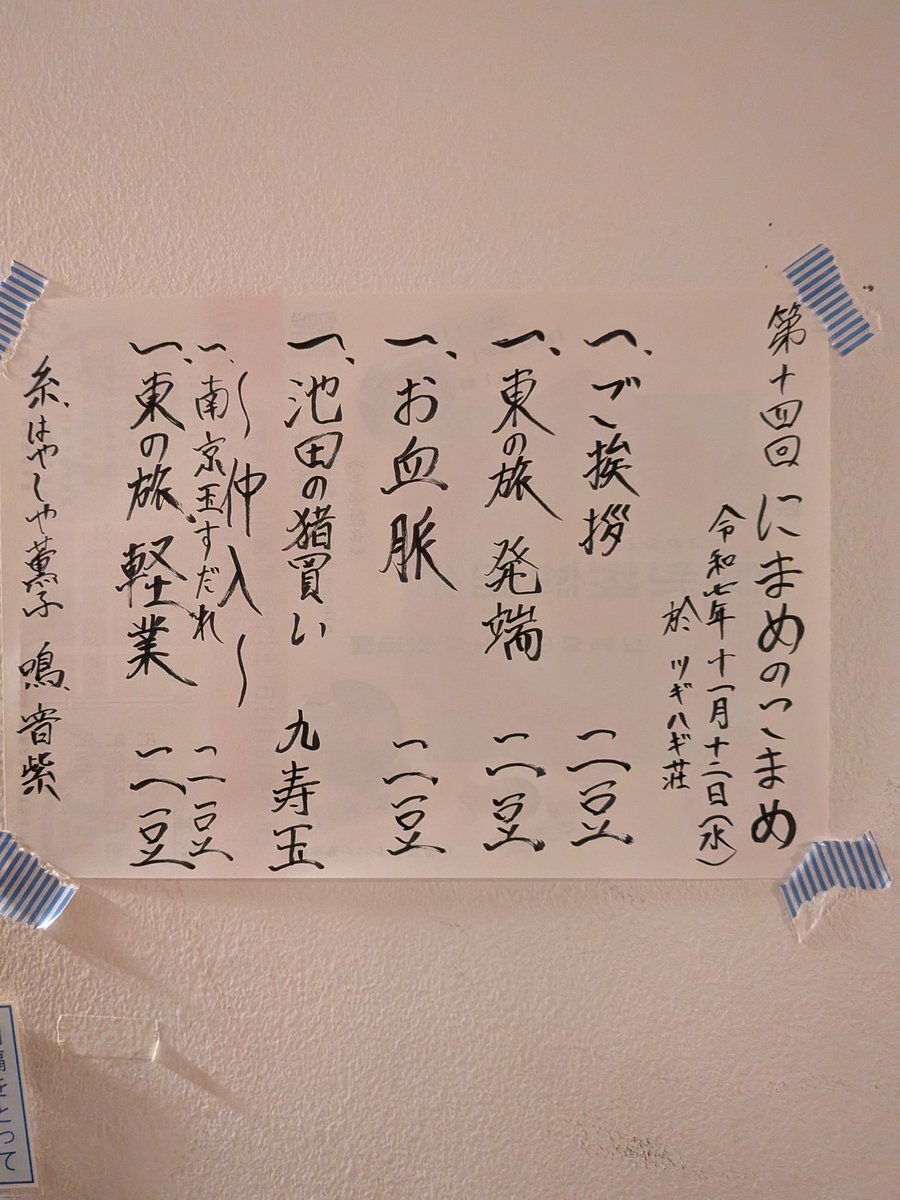 第十四回 にまめのこまめ
令和七年十一月十二日(水)
於 ツギハギ荘
一、ご挨拶 二豆
一、東の旅 発端 二豆
一、お血脈 二豆
一、池田の猪買い 九寿玉
〜仲入〜
一、南京玉すだれ 二豆
一、東の旅 軽業 二豆
糸、はやしや薫子 鳴、音紫
隔をとって